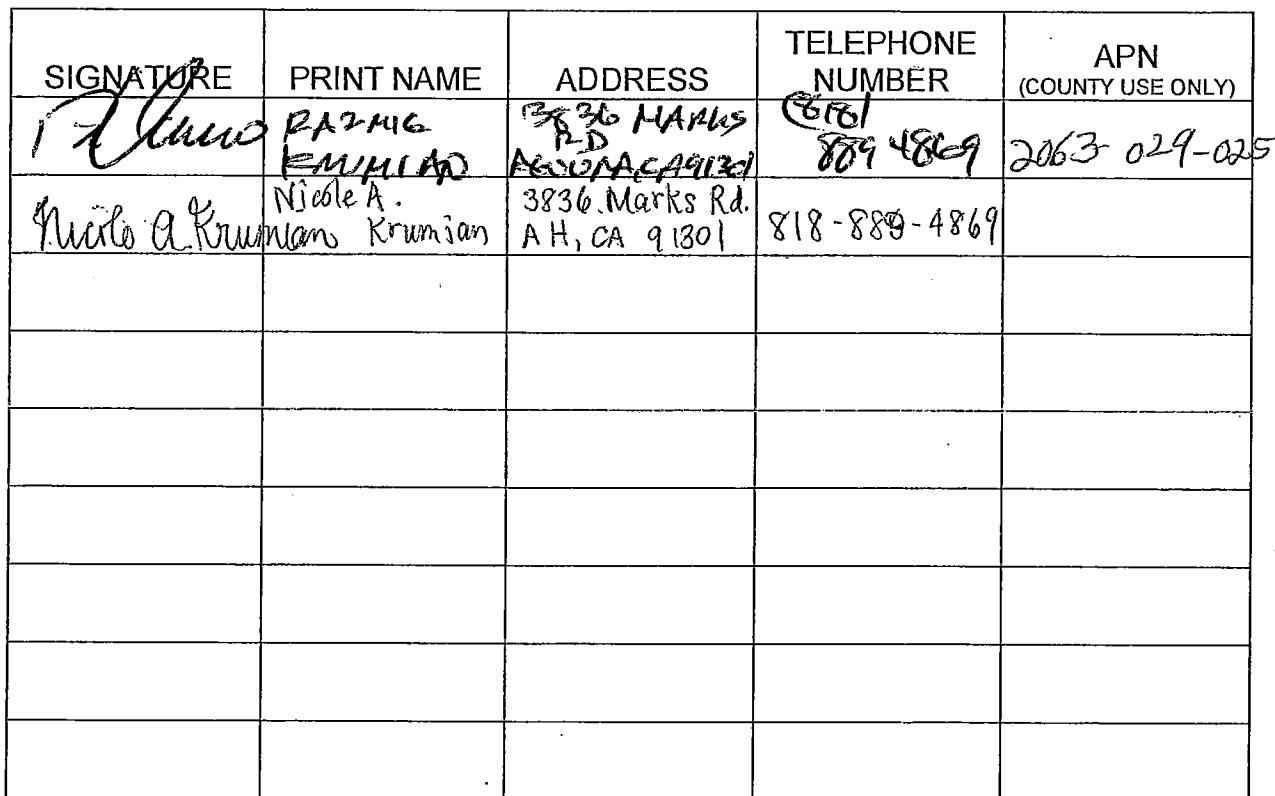 SIGNATURE PRINT NAME ADDRESS TELEPHONE NUMBER APN (COUNTY USE ONLY)
RAZMIG
3836 MARKS
RD
(818)
889 4869
2063-029-025
CA 91301
Nicole A. Krumian
Nicole A.
Krumian
3836 Marks Rd.
AH, CA 91301
818-889-4869